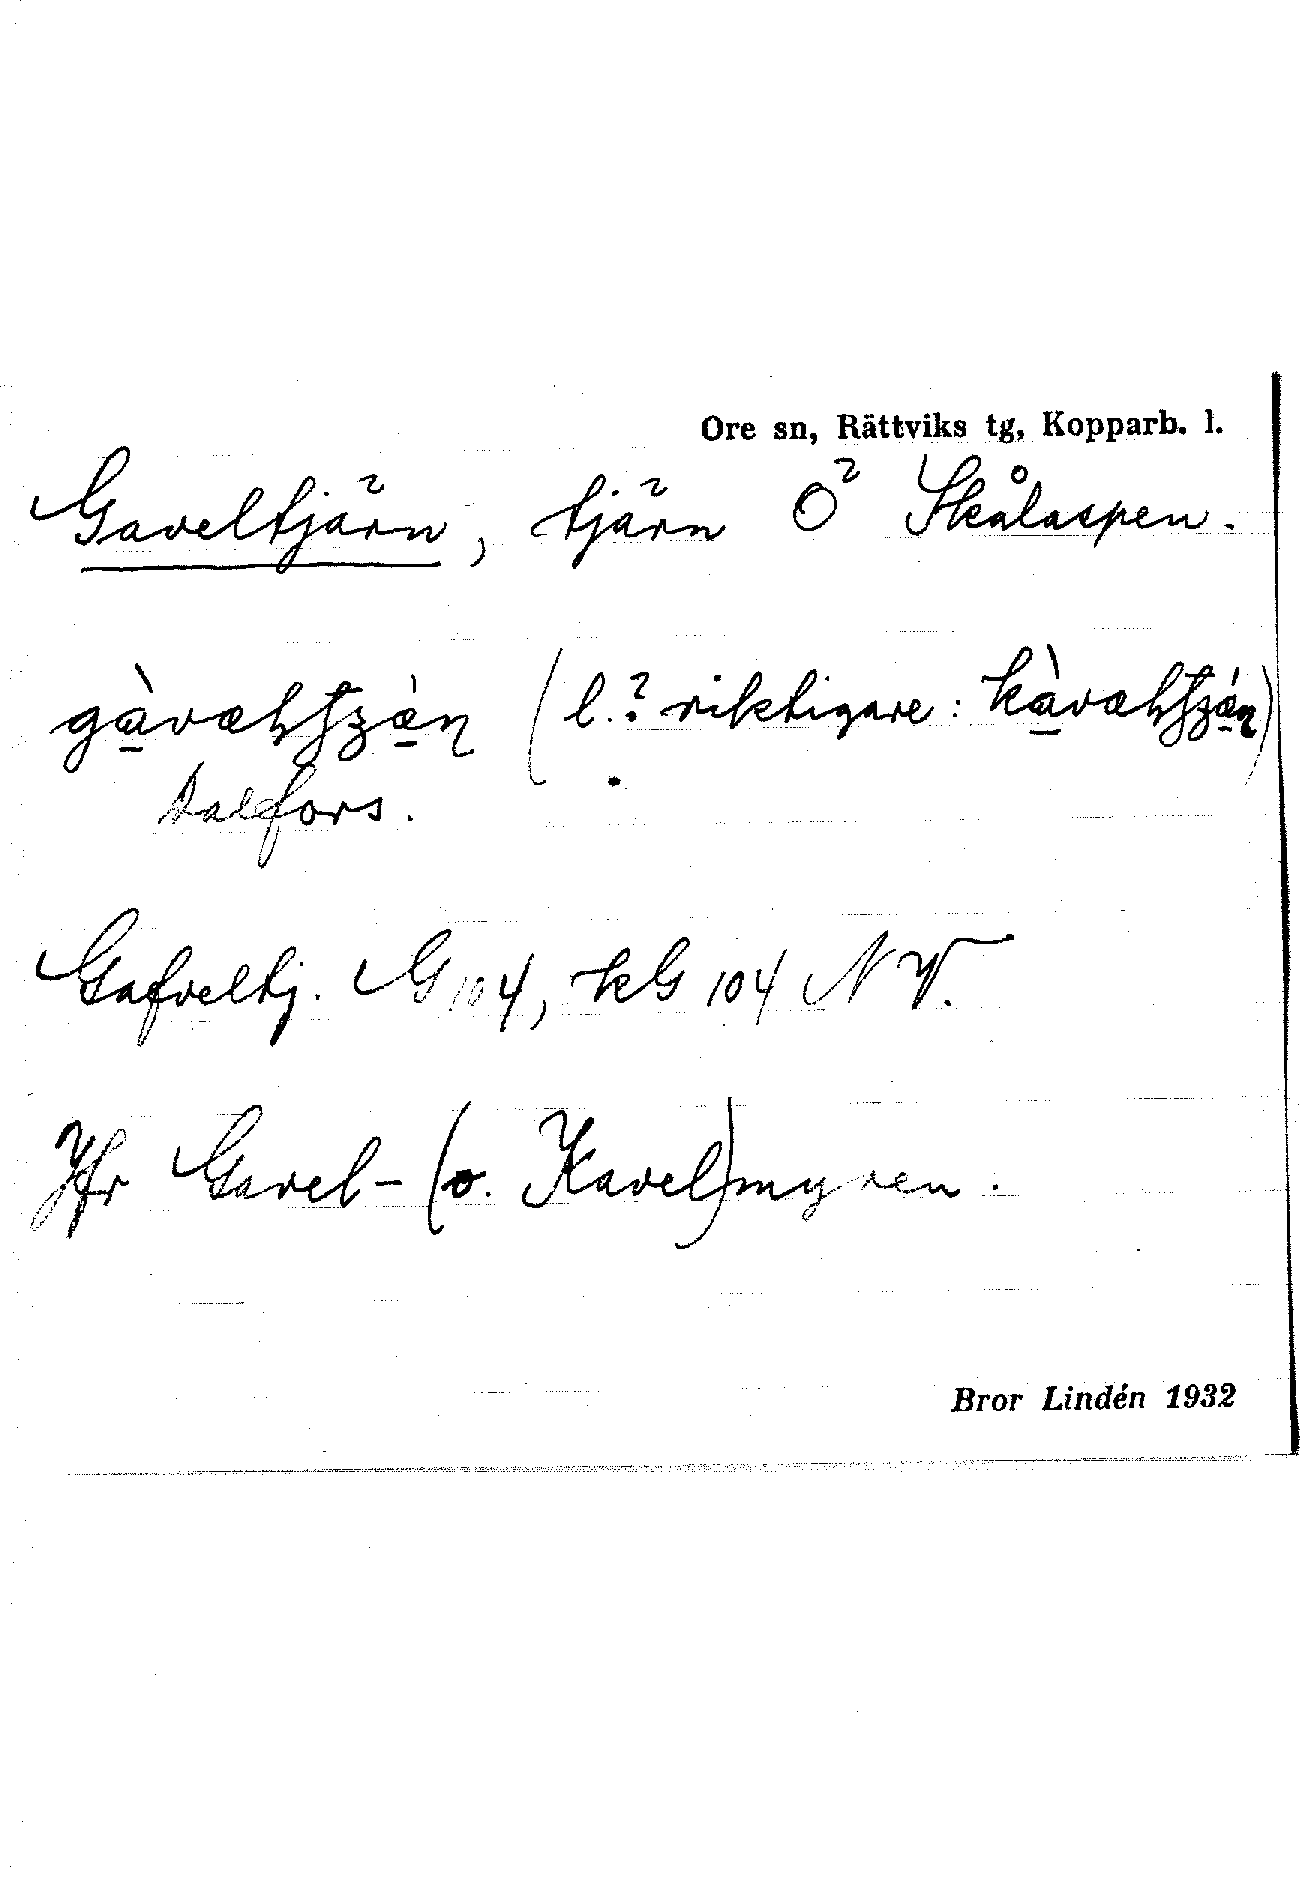 Ore sn, Rättviks tg, Kopparb. l.
Gaveltjärn, tjärn Ö Skålaspen.
(l.? riktigare:
Dalfors.
Gafveltj. G 104, kG 104 NV.
Jfr Gavel- (o. Kavel)myren.
Bror Lindén 1932